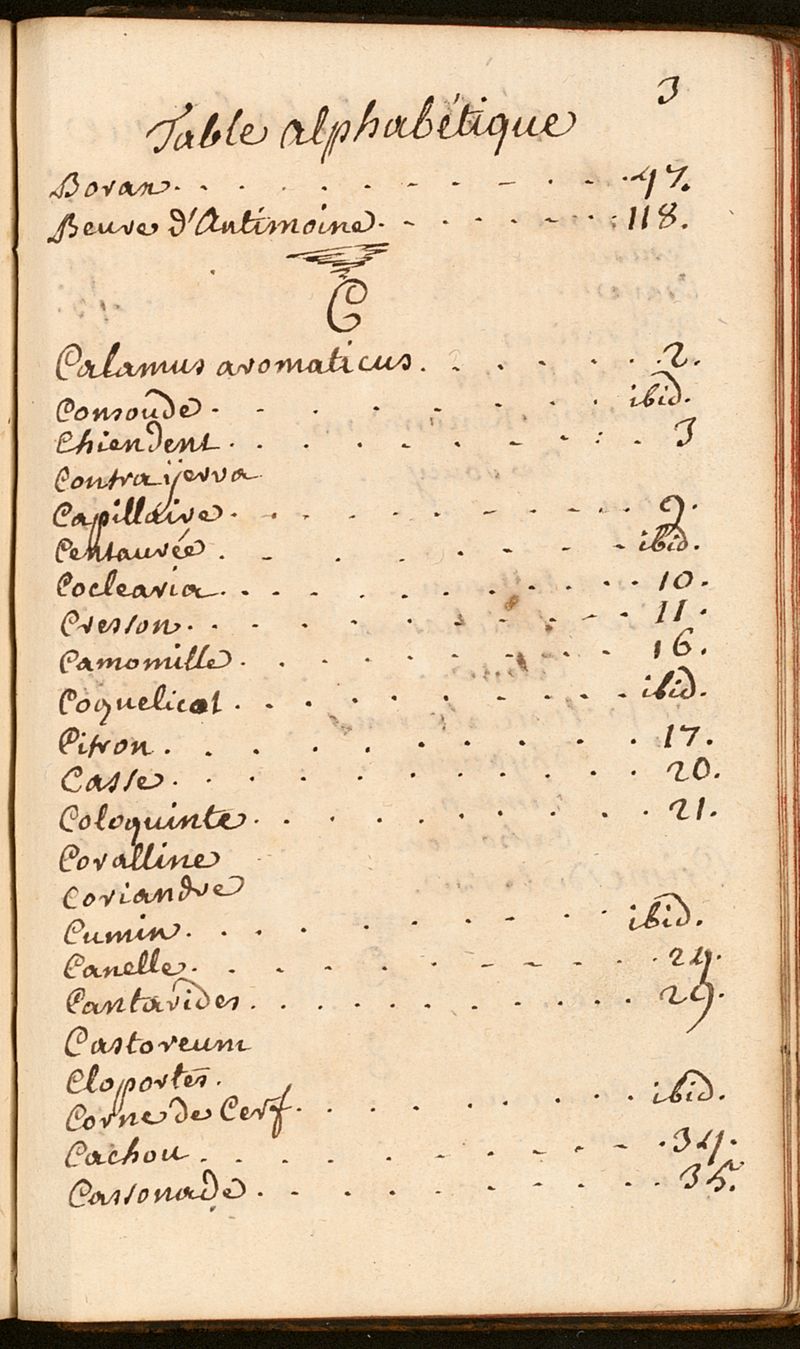 3
Table alphabétique
Boran . . . . . . . . . . 47.
Beure d'Antimoine . . . . . . 118.
C
Calamus aromaticus . . . . . . 2.
Consoude . . . . . . . . ibid.
Chiendent . . . . . . . . . 3
Contraÿerva
Capillaire . . . . . . . . . . 9.
Centaurée . . . . . . . . ibid.
Coclearia . . . . . . . . . . 10.
Cresson . . . . . . . . . . 11.
Camomille . . . . . . . . . 16.
Coquelicot . . . . . . . . . ibid.
Citron . . . . . . . . . . 17.
Casse . . . . . . . . . . 20.
Coloquinte . . . . . . . . . 21.
Coralline
Coriandre
Cumin . . . . . . . . . ibid.
Canelle . . . . . . . . . . 24.
Cantarides . . . . . . . . . 29.
Castoreum
Cloportes .
Corne de Cerf . . . . . . . . ibid.
Cachou . . . . . . . . . . 34.
Cassonade . . . . . . . . . . 35.